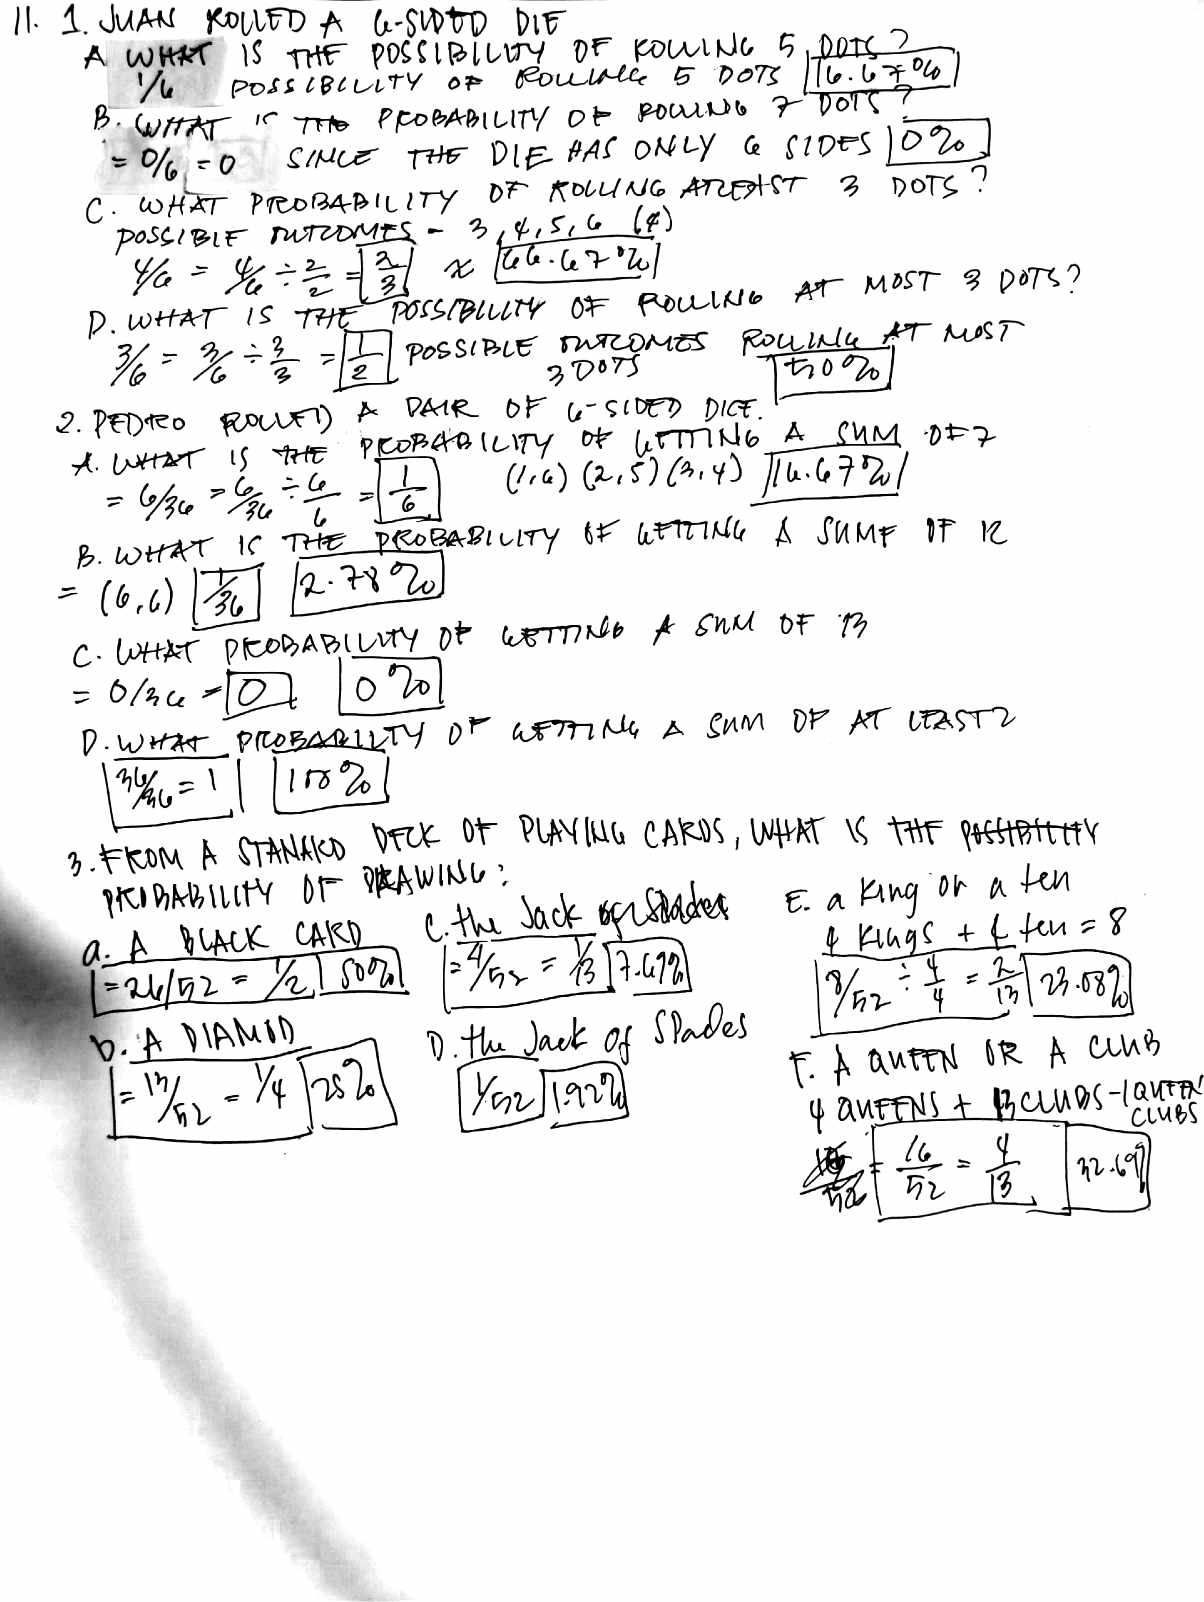 11. 1. JUAN ROLLED A 6-SIDED DIE
A WHAT IS THE POSSIBILITY OF ROLLING 5 DOTS?
1/6 POSSIBILITY OF ROLLING 5 DOTS 16.67%
B. WHAT IS THE PROBABILITY OF ROLLING 7 DOTS?
= 0/6 = 0 SINCE THE DIE HAS ONLY 6 SIDES 0%
C. WHAT PROBABILITY OF ROLLING ATLEAST 3 DOTS?
POSSIBLE OUTCOMES - 3,4,5,6 (4)
4/6 = 4/6 ÷ 2/2 = 2/3 ≈ 66.67%
D. WHAT IS THE POSSIBILITY OF ROLLING AT MOST 3 DOTS?
3/6 = 3/6 ÷ 3/3 = 1/2 POSSIBLE OUTCOMES ROLLING AT MOST
3 DOTS 50%
2. PEDRO ROLLED A PAIR OF 6-SIDED DICE.
A. WHAT IS THE PROBABILITY OF GETTING A SUM OF 7
= 6/36 = 6/36 ÷ 6/6 = 1/6 (1,6) (2,5) (3,4) 16.67%
B. WHAT IS THE PROBABILITY OF GETTING A SUMF OF 12
= (6,6) 1/36 2.78%
C. WHAT PROBABILITY OF GETTING A SUM OF 13
= 0/36 = 0 0%
D. WHAT PROBABILTY OF GETTING A SUM OF AT LEAST 2
36/36 = 1 100%
3. FROM A STANARD DECK OF PLAYING CARDS, WHAT IS THE POSSIBILITY
PROBABILITY OF DRAWING:
a. A BLACK CARD
= 26/52 = 1/2 50%
b. A DIAMOD
= 13/52 = 1/4 25%
C. the Jack of Spades
= 4/52 = 1/13 7.69%
D. the Jack of Spades
1/52 1.92%
E. a King or a ten
4 Kings + 4 ten = 8
8/52 ÷ 4/4 = 2/13 23.08%
F. A QUEEN OR A CLUB
4 QUEENS + 13 CLUBS - 1 QUEEN
CLUBS
= 16/52 = 4/13 32.69%